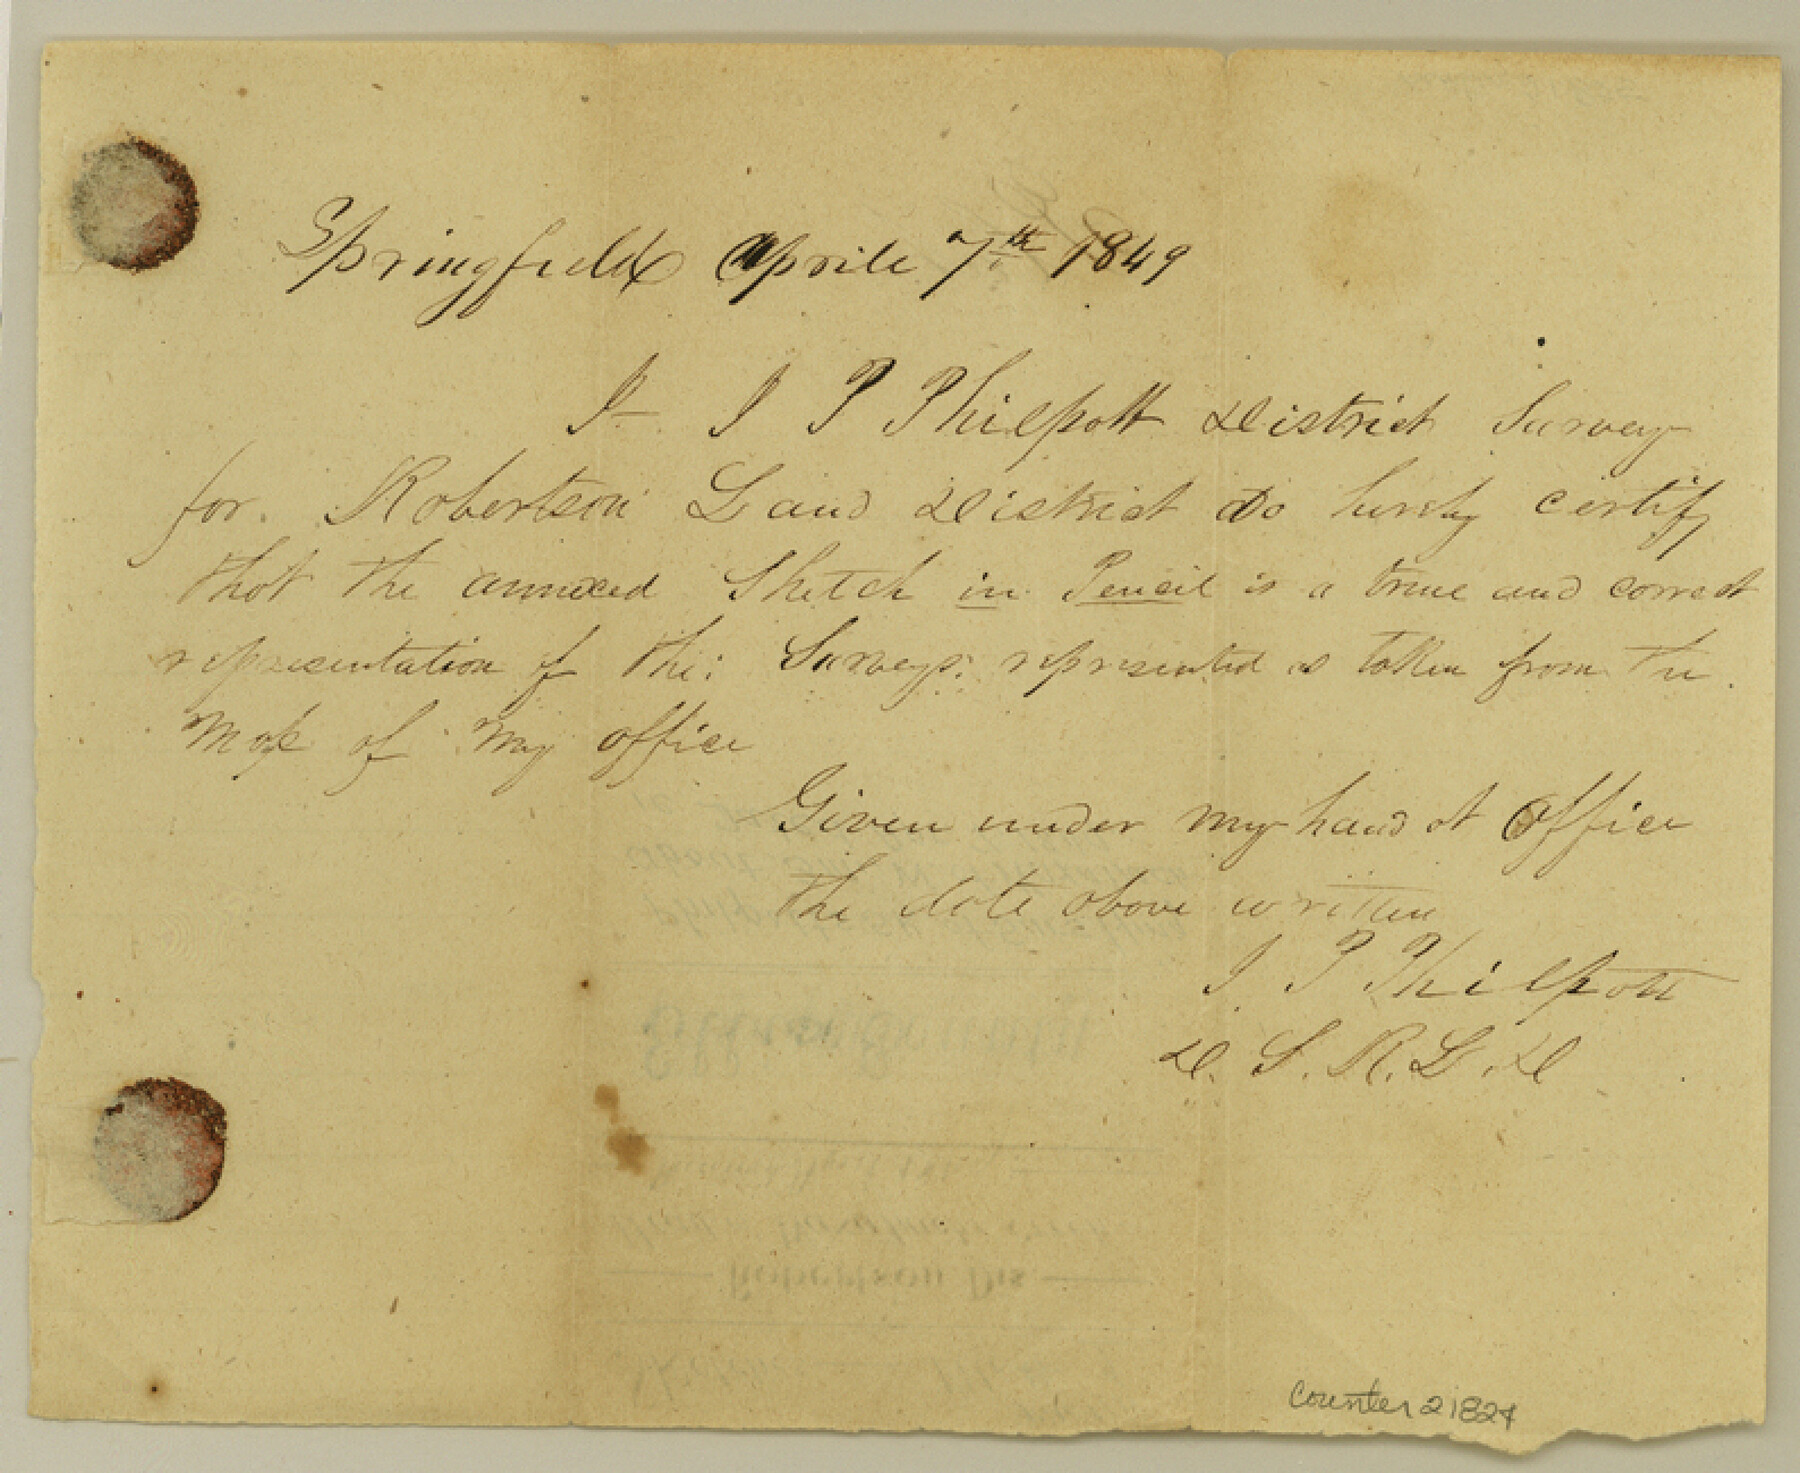 Springfield Aprile 7th 1849
I I P Philpott District Survey
for Robertson Land District do hereby certify
that the annexed Sketch in Pencil is a true and correct
representation of the Surveys represented as taken from the
Map of my office
Given under my hand at office
the date above written
I P Philpott
D. S. R. L. D
Counter 21824